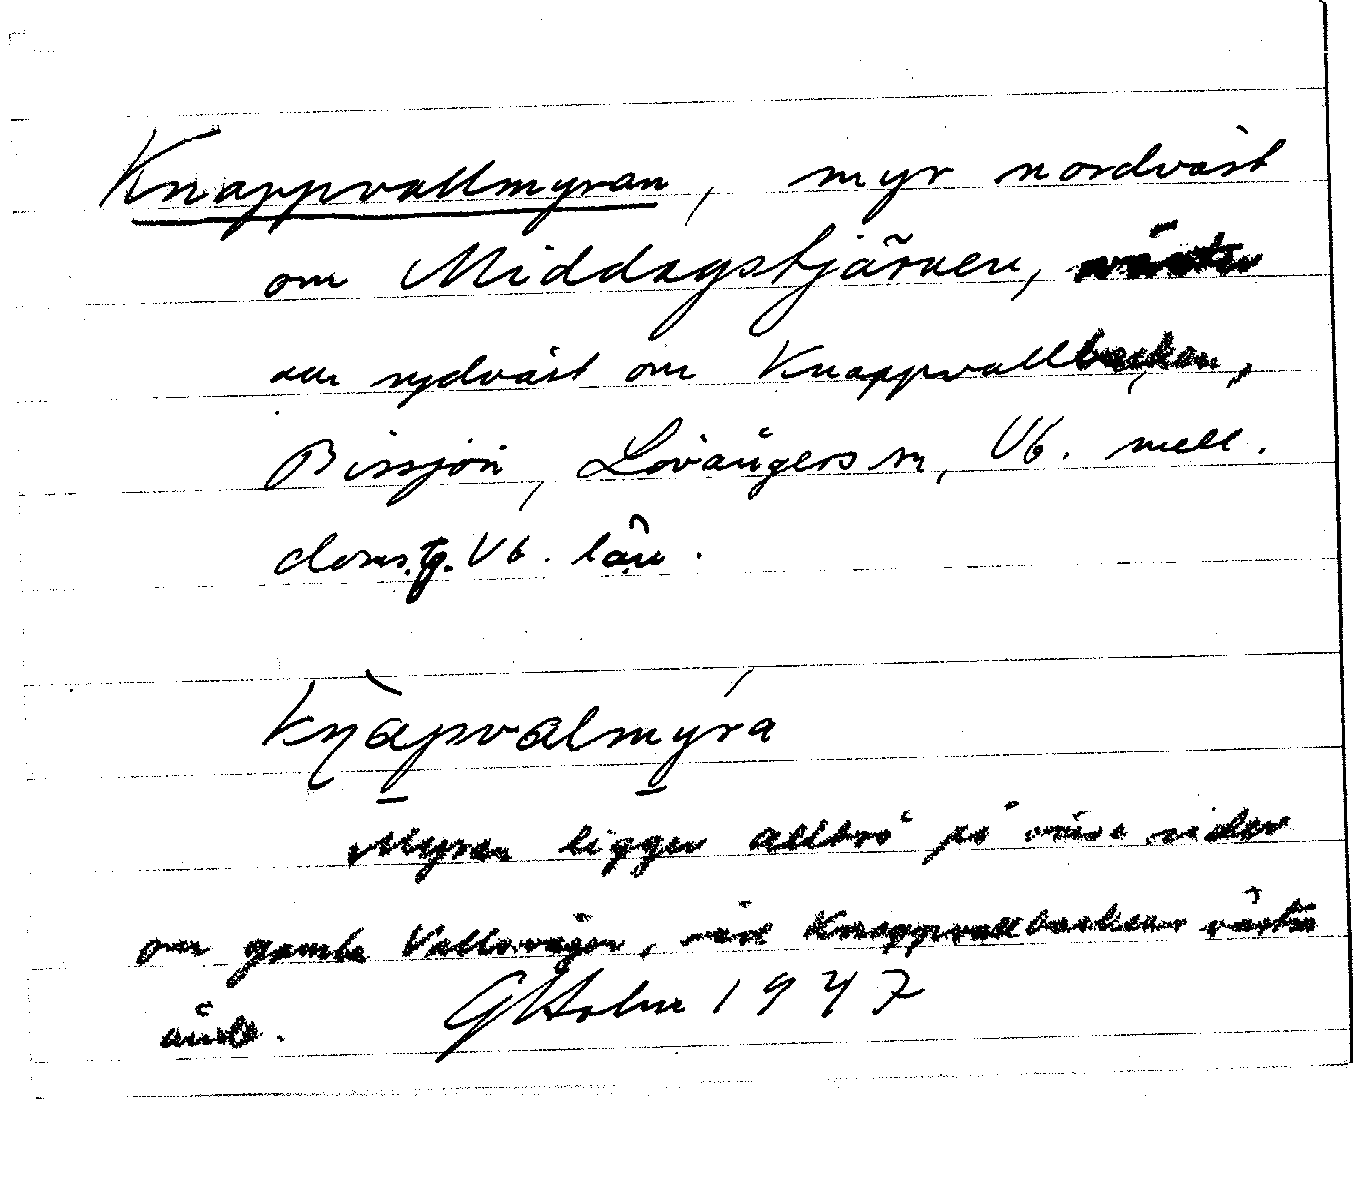 Knappvallmyran, myr nordväst
om Middagstjärnen,
om sydväst om Knappvallbacken,
Bissjön, Lövångers sn, Vb. mell.
doms.tg. Vb. län.
kṇàpvalmýra
Myran ligger alltså på sidor
om gamla Vallsvägen, vid Knappvallbackens västra
ände. G Holm 1947